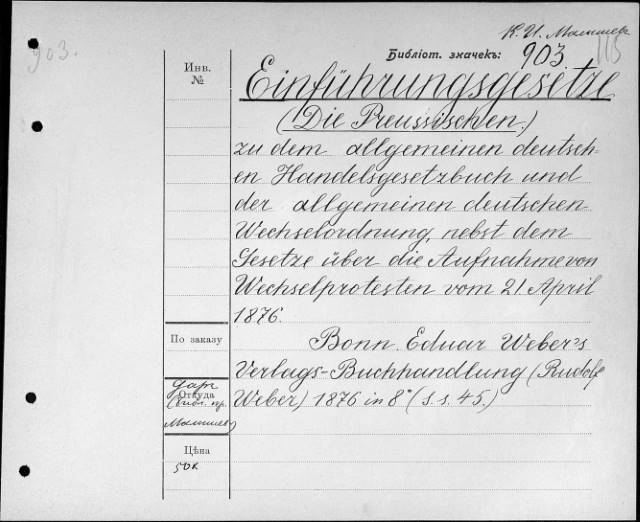 К. И. Малышев
903.
Библіот. значекъ: 903
115
Инв.
№
Einführungsgesetze
(Die Preussischen.)
zu dem allgemeinen deutsch-
en Handelsgesetzbuch und
der allgemeinen deutschen
Wechselordnung, nebst dem
Gesetze über die Aufnahme von
Wechselprotesten vom 21 April
1876.
По заказу
Bonn. Eduar Weber's
Verlags-Buchhandlung (Rudolf
Weber) 1876 in 8° (s.s. 45.)
Откуда
даръ
(библ. пр.
Малышев)
Цѣна
50к